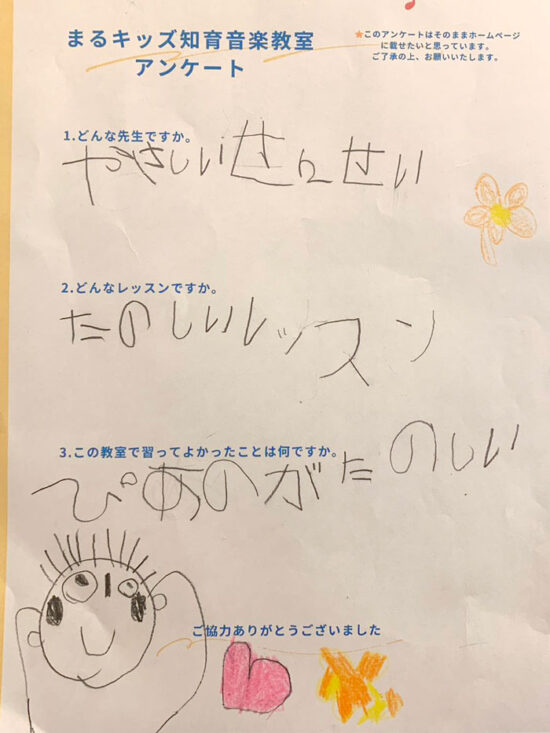 まるキッズ知育音楽教室
アンケート
★このアンケートはそのままホームページ
に載せたいと思っています。
ご了承の上、お願いいたします。
1.どんな先生ですか。
やさしいせんせい
2.どんなレッスンですか。
たのしいレッスン
3.この教室で習ってよかったことは何ですか。
ぴあのがたのしい
ご協力ありがとうございました